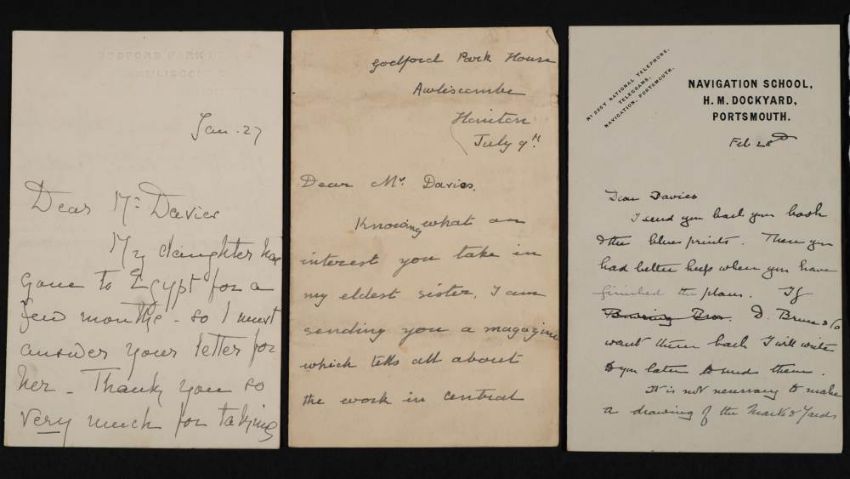 Jan. 27
Dear Mr Davies
My daughter has
gone to Egypt for a
few months - so I must
answer your letter for
her - Thank you so
very much for taking
Godford Park House
Awliscombe
Honiton
July 9th
Dear Mr. Davies,
Knowing what an
interest you take in
my eldest sister, I am
sending you a magazine
which tells all about
the work in central
No 220Y NATIONAL TELEPHONE.
TELEGRAMS.
NAVIGATION, PORTSMOUTH.
NAVIGATION SCHOOL,
H. M. DOCKYARD,
PORTSMOUTH.
Feb 28th
Dear Davies
I send you back your book
& the blue prints. These you
had better keep when you have
finished the plans. If
D. Brown & Co
want them back I will write
to you later to send them.
It is not necessary to make
a drawing of the Masts & Yards